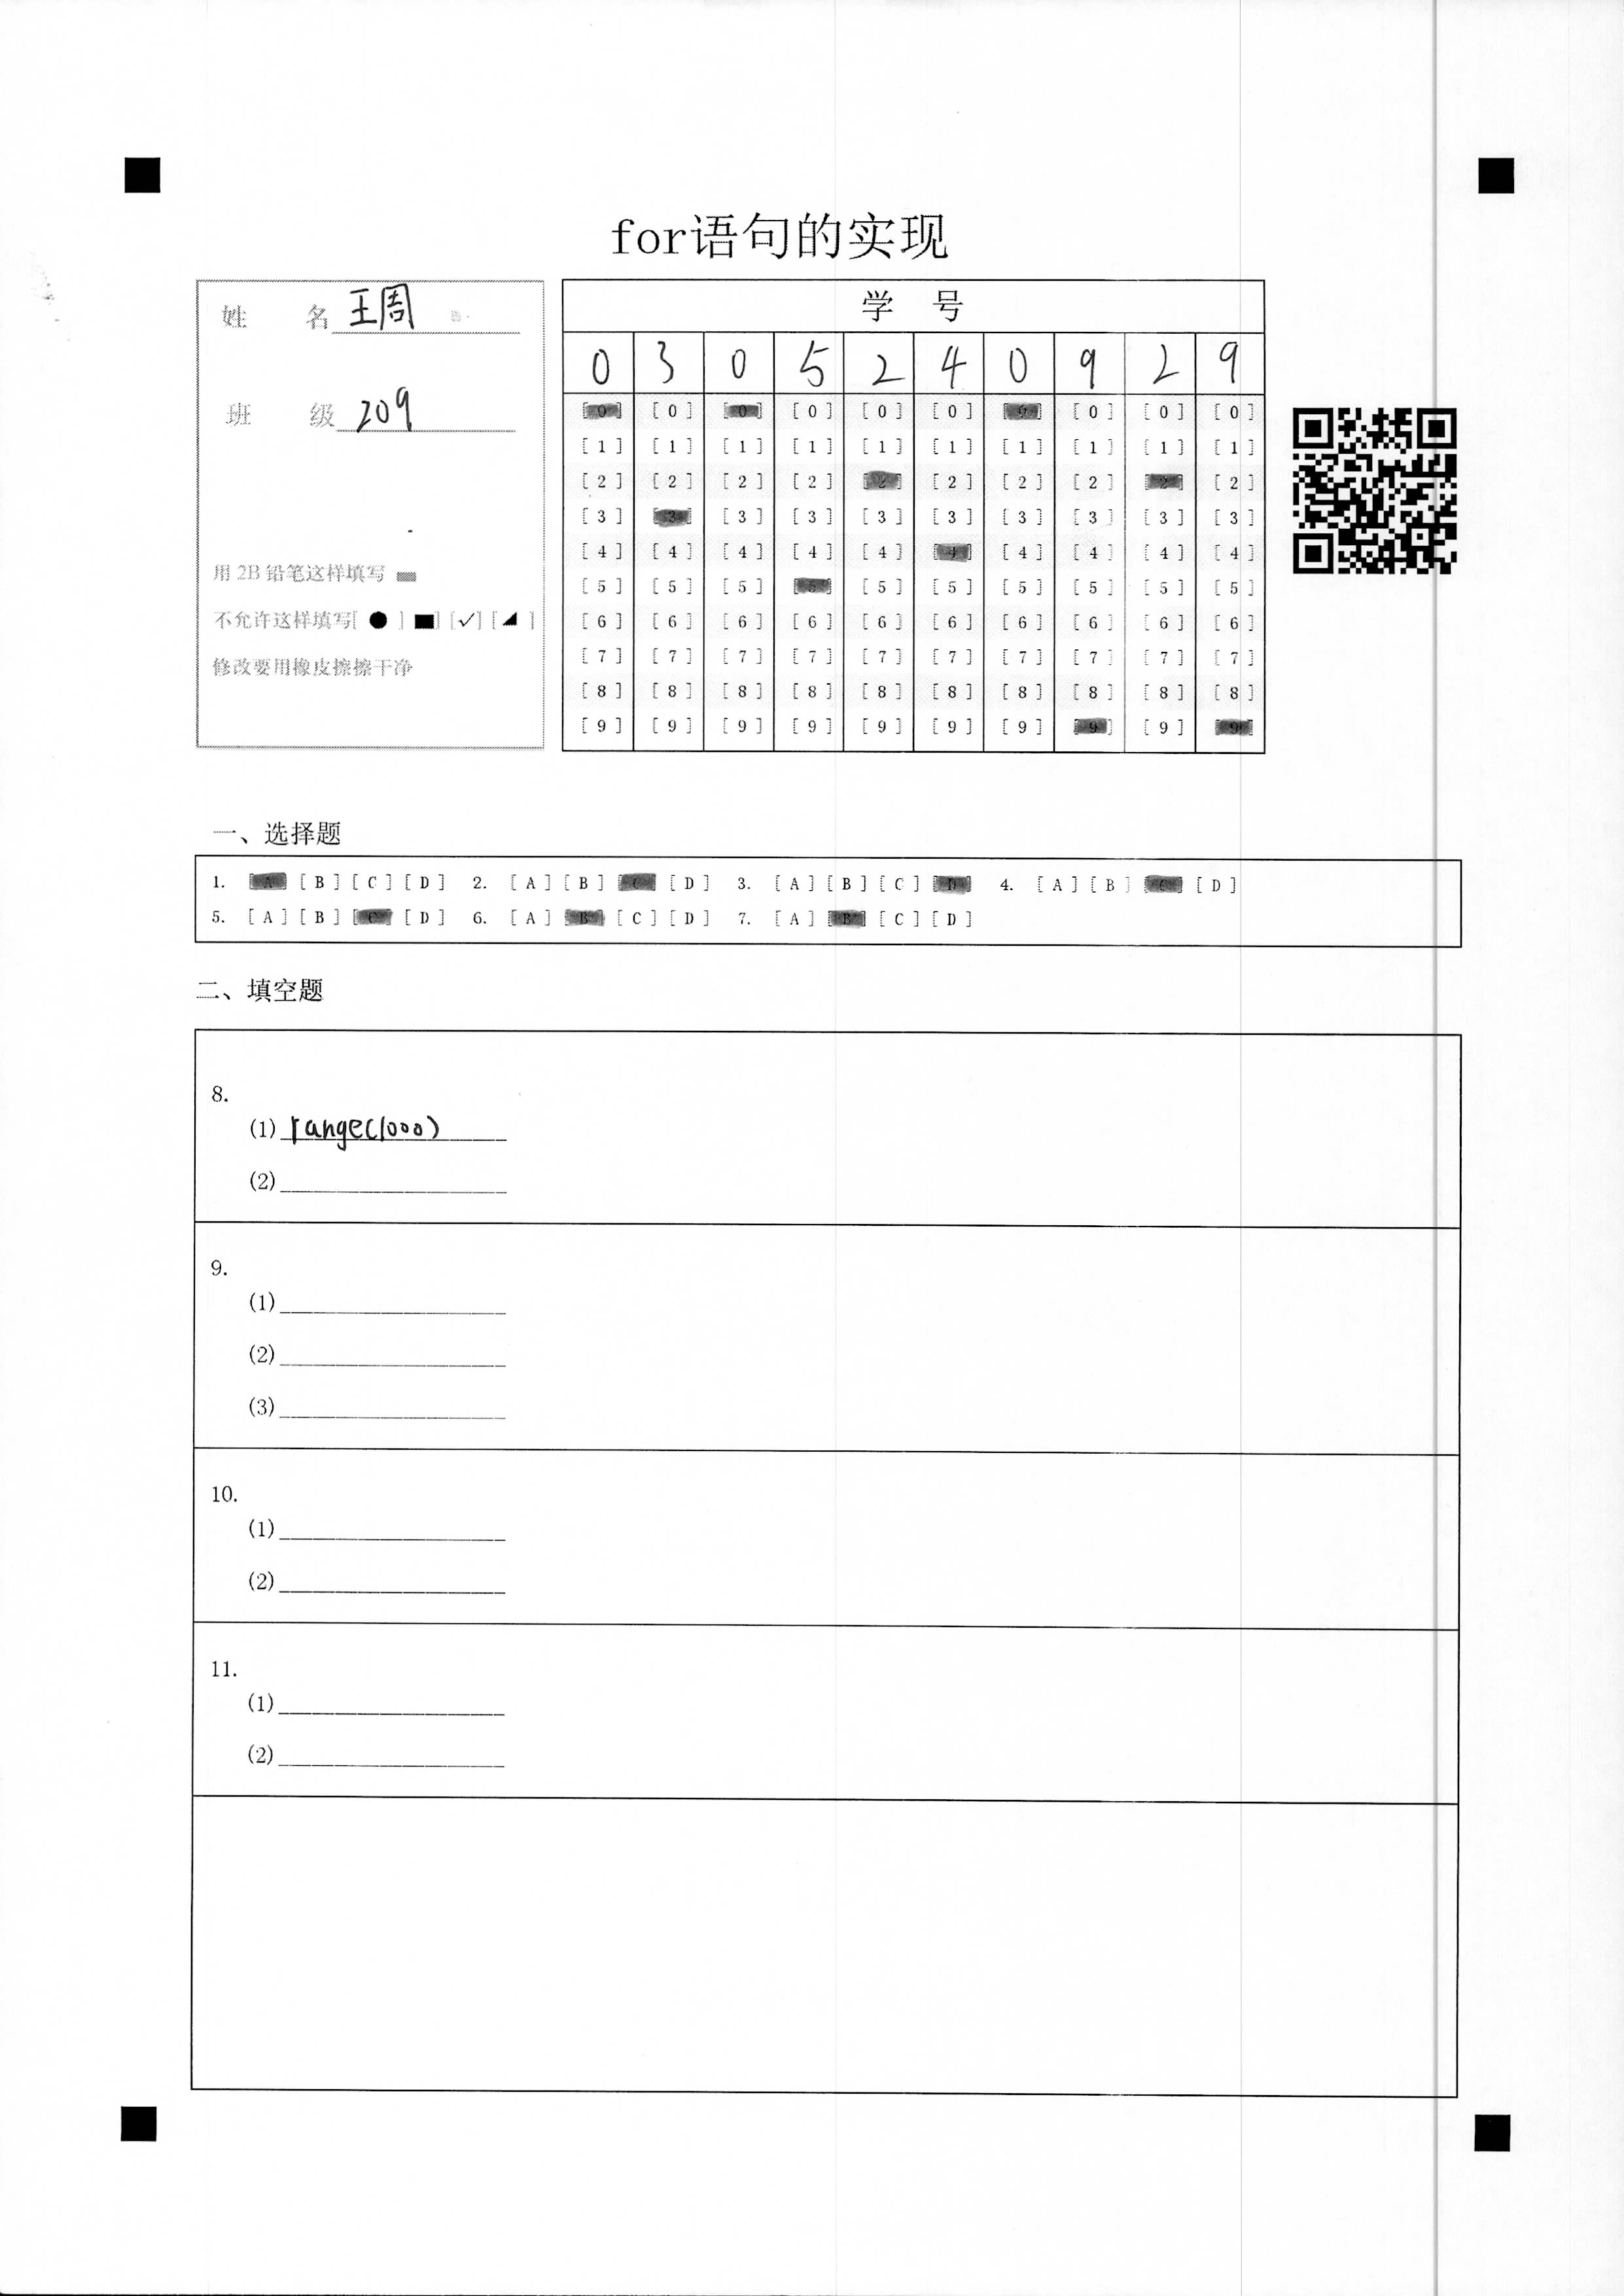 for语句的实现
姓 名 王周
班 级 209
用 2B 铅笔这样填写
不允许这样填写[ ● ] ■] [✓] [◢ ]
修改要用橡皮擦擦干净
学 号
0 3 0 5 2 4 0 9 2 9
[0] [0] [0] [0] [0] [0] [0] [0] [0] [0]
[1] [1] [1] [1] [1] [1] [1] [1] [1] [1]
[2] [2] [2] [2] [2] [2] [2] [2] [2] [2]
[3] [3] [3] [3] [3] [3] [3] [3] [3] [3]
[4] [4] [4] [4] [4] [4] [4] [4] [4] [4]
[5] [5] [5] [5] [5] [5] [5] [5] [5] [5]
[6] [6] [6] [6] [6] [6] [6] [6] [6] [6]
[7] [7] [7] [7] [7] [7] [7] [7] [7] [7]
[8] [8] [8] [8] [8] [8] [8] [8] [8] [8]
[9] [9] [9] [9] [9] [9] [9] [9] [9] [9]
一、选择题
1. [A] [B] [C] [D] 2. [A] [B] [C] [D] 3. [A] [B] [C] [D] 4. [A] [B] [C] [D]
5. [A] [B] [C] [D] 6. [A] [B] [C] [D] 7. [A] [B] [C] [D]
二、填空题
8.
(1) range(1000)
(2)
9.
(1)
(2)
(3)
10.
(1)
(2)
11.
(1)
(2)